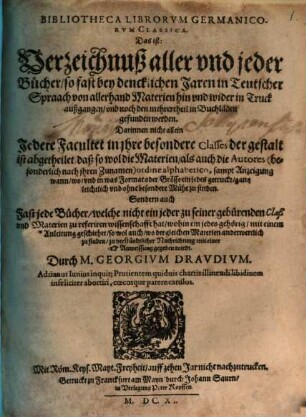 BIBLIOTHECA LIBRORVM GERMANICO-
RVM CLASSICA.
Das ist:
Verzeichnuß aller vnd jeder
Bücher/ so fast bey dencklichen Jaren in Teutscher
Spraach von allerhand Materien hin vnd wider in Truck
außgangen/ vnd noch den mehrertheil in Buchläden
gefunden werden.
Darinnen nicht allein
Jedere Facultet in jhre besondere Classes der gestalt
ist abgetheilet/ daß so wol die Materien/ als auch die Autores (be-
sonderlich nach jhren Zunamen) ordine alphabetico, sampt Anzeigung
wann/ wo/ vnd in was Format oder Größe ein jedes getruckt/ gantz
leichtlich vnd ohne besondere Mühe zu finden.
Sondern auch
Fast jede Bücher/ welche nicht ein jeder zu seiner gebürenden Claß
vnd Materien zu referiren wissenschafft hat/ wohin ein jedes gehörig/ mit einem
Anleitung geschiehet/ so wol auch/ wo dergleichen Materien anderwertlich
zu finden/ zu verständlicher Nachrichtung mit einer
Anweissung gegeben wordt.
Durch M. GEORGIVM DRAVDIVM.
Mit Röm. Keys. Mayt. Freyheit/ auff zehen Jar nicht nachzutrucken.
Getruckt zu Franckfurt am Mayn/ durch Johann Saurn/
in Verlegung Peter Kopffen.